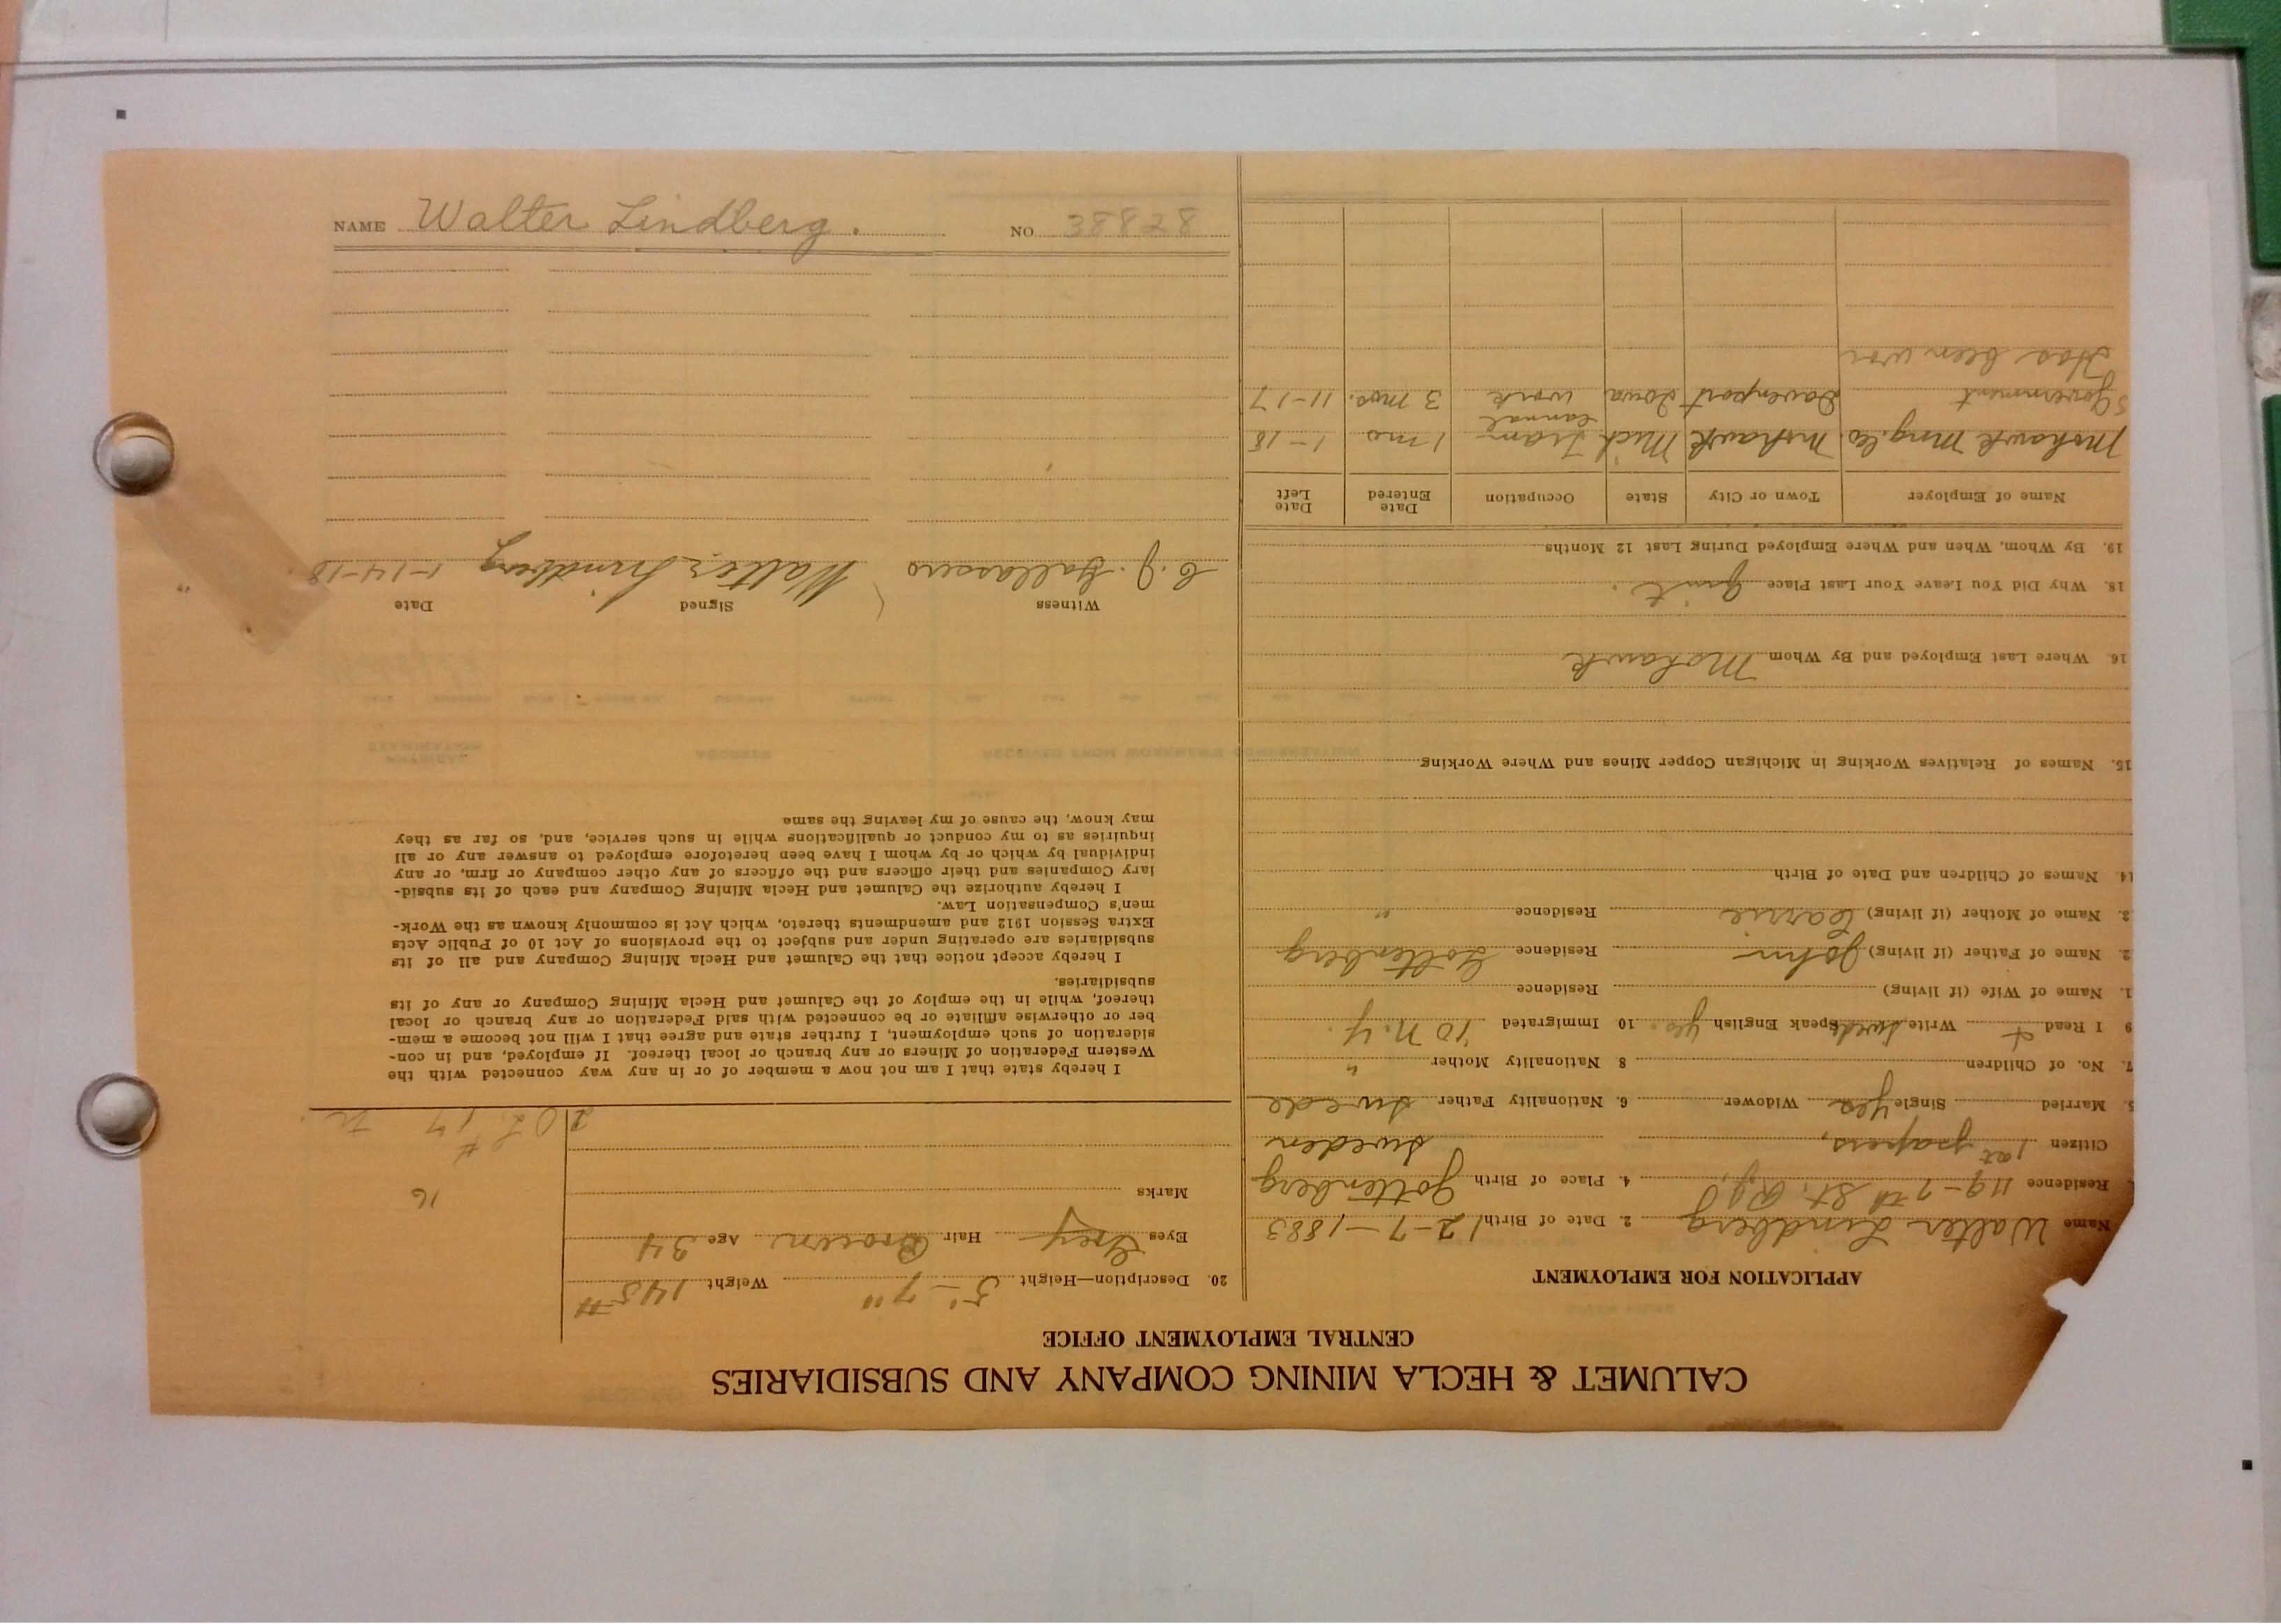 CALUMET & HECLA MINING COMPANY AND SUBSIDIARIES
CENTRAL EMPLOYMENT OFFICE
APPLICATION FOR EMPLOYMENT
Name Walter Lindberg 2. Date of Birth 12-7-1883
Residence 119-7th St. 4. Place of Birth Gottenberg
Citizen 1st papers, Sweden
5. Married Single yes Widower 6. Nationality Father Swede
7. No. of Children 8 Nationality Mother "
9 I Read & Write Swede Speak English yes. 10 Immigrated '10 N.Y.
1. Name of Wife (if living) Residence
2. Name of Father (if living) John Residence Gottenberg
3. Name of Mother (if living) Carrie Residence "
14. Names of Children and Date of Birth
15. Names of Relatives Working in Michigan Copper Mines and Where Working
16. Where Last Employed and By Whom Mohawk
18. Why Did You Leave Your Last Place Quit.
19. By Whom, When and Where Employed During Last 12 Months
Name of Employer Town or City State Occupation Date Entered Date Left
Mohawk Mng. Co. Mohawk Mich Tram 1 mo 1-18
Government Davenport Iowa cannal work 3 mos. 11-17
Has been wor
20. Description—Height 5'-7" Weight 145#
Eyes Grey Hair Brown Age 34
Marks
16
I hereby state that I am not now a member of or in any way connected with the
Western Federation of Miners or any branch or local thereof. If employed, and in con-
sideration of such employment, I further state and agree that I will not become a mem-
ber or otherwise affiliate or be connected with said Federation or any branch or local
thereof, while in the employ of the Calumet and Hecla Mining Company or any of its
subsidiaries.
I hereby accept notice that the Calumet and Hecla Mining Company and all of its
subsidiaries are operating under and subject to the provisions of Act 10 of Public Acts
Extra Session 1912 and amendments thereto, which Act is commonly known as the Work-
men's Compensation Law.
I hereby authorize the Calumet and Hecla Mining Company and each of its subsid-
iary Companies and their officers and the officers of any other company or firm, or any
individual by which or by whom I have been heretofore employed to answer any or all
inquiries as to my conduct or qualifications while in such service, and, so far as they
may know, the cause of my leaving the same
Witness Signed Date
C. J. Walter Lindberg 1-14-18
NAME Walter Lindberg. NO. 38828